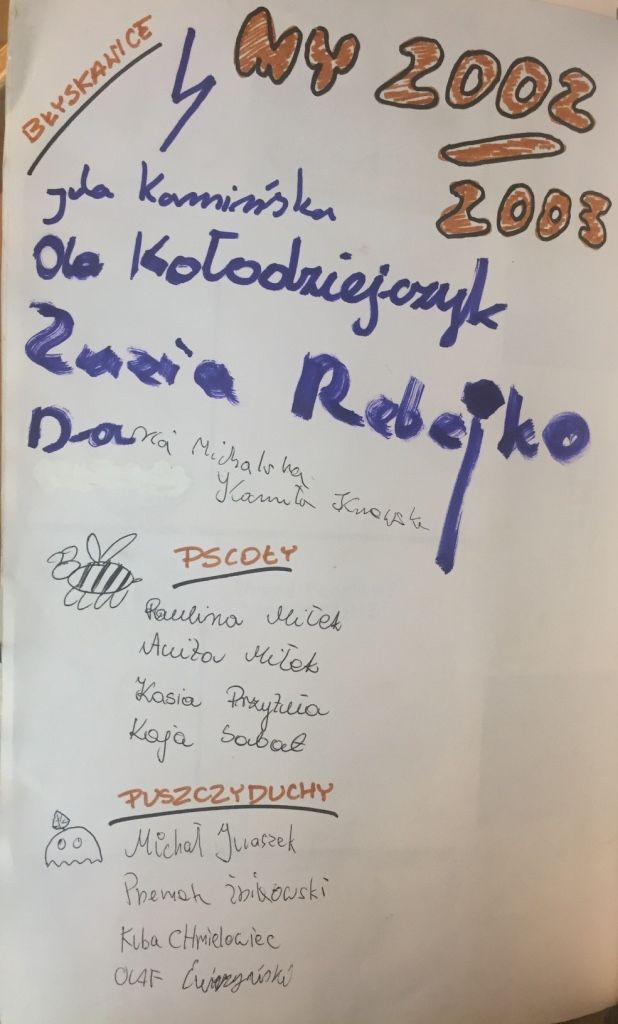 BŁYSKAWICE
MY 2002
2003
Jula Kamińska
Ola Kołodziejczyk
Zuzia Rebejko
Daria Michalska
Kamila
PSCOŁY
Paulina Miłek
Anita Miłek
Kasia
Kaja Sabat
PUSZCZYDUCHY
Michał Iwaszek
Żbikowski
Kuba CHmielowiec
OLAF